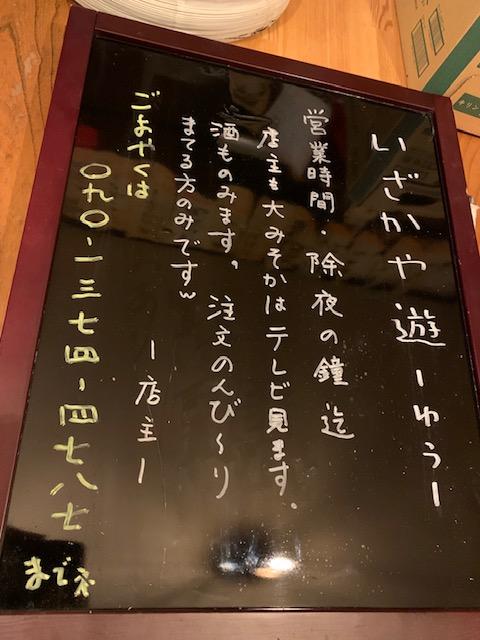 いざかや遊ーゆうー
営業時間・除夜の鐘迄
店主も大みそかはテレビ見ます。
酒ものみます。注文のんび〜り
まてる方のみですw
ー店主ー
ごよやくは
〇九〇-一三七四-四七八七
まで
キリン